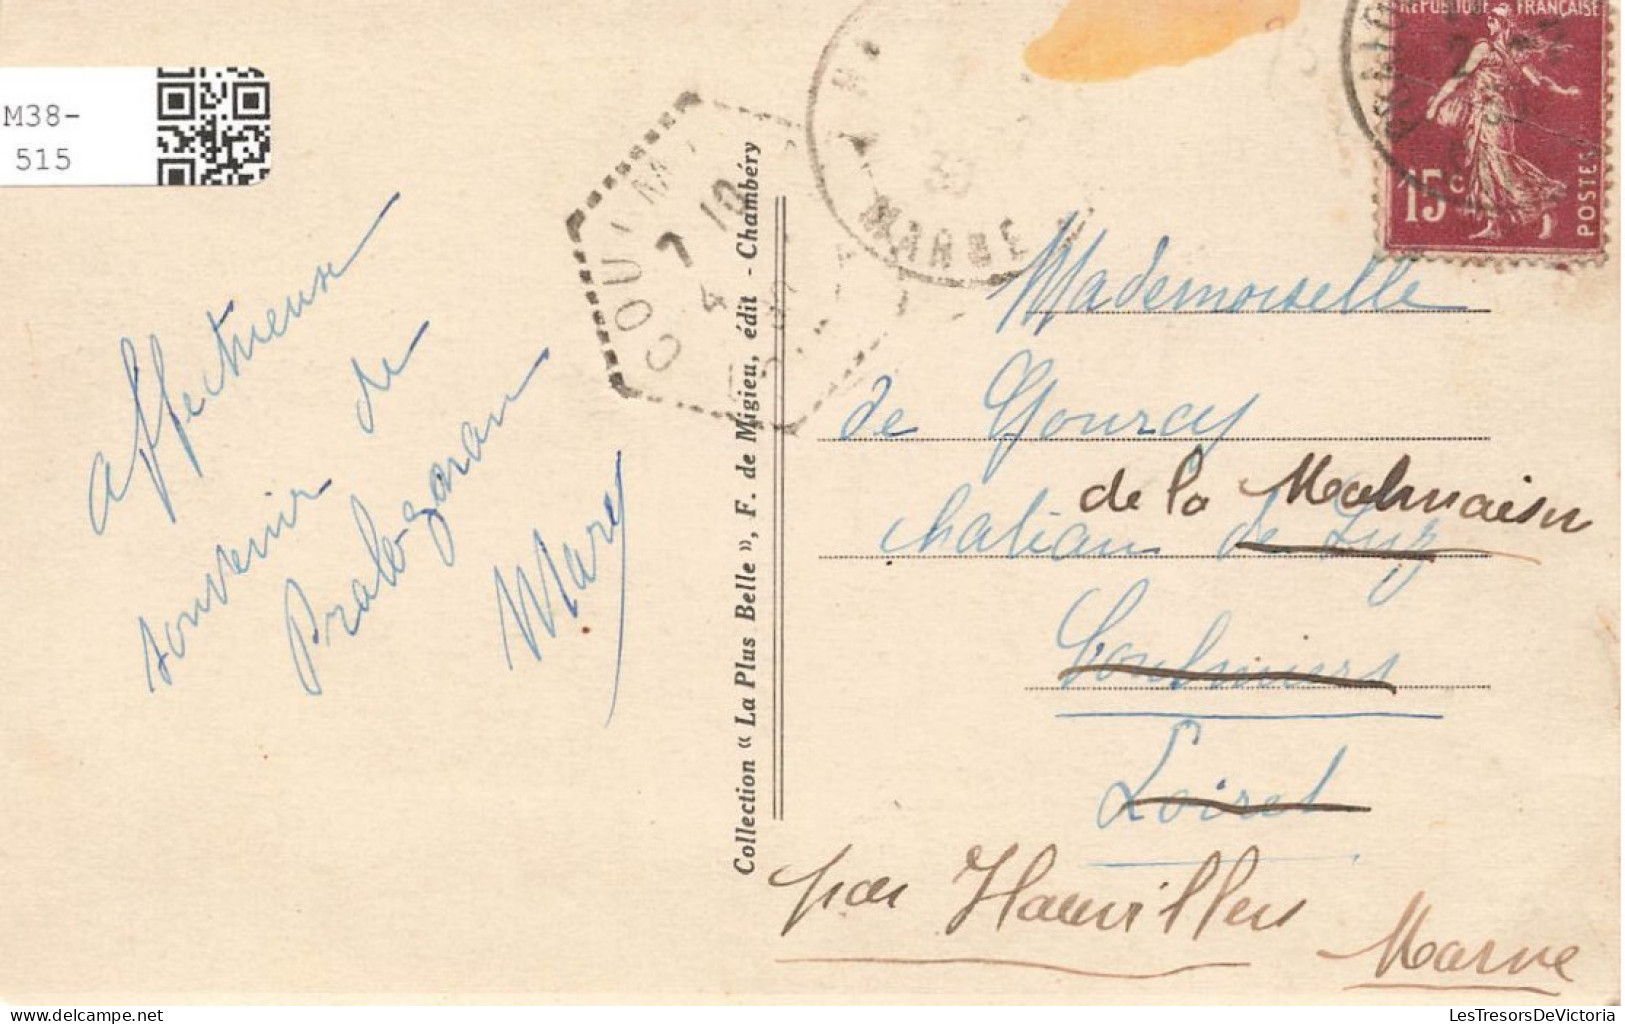 M38-
515
affectueuse
souvenir de
Pralo-gonan
Mary
Collection « La Plus Belle », F. de Migieu, édit - Chambéry
COULM
7 10
4
30
MARNE
RÉPUBLIQUE FRANÇAISE
15c
POSTES
Mademoiselle
de Gourcy
de la Malmaison
chateau de Luz
Coulmiers
Loiret
par Hauvillers
Marne
LesTresorsDeVictoria